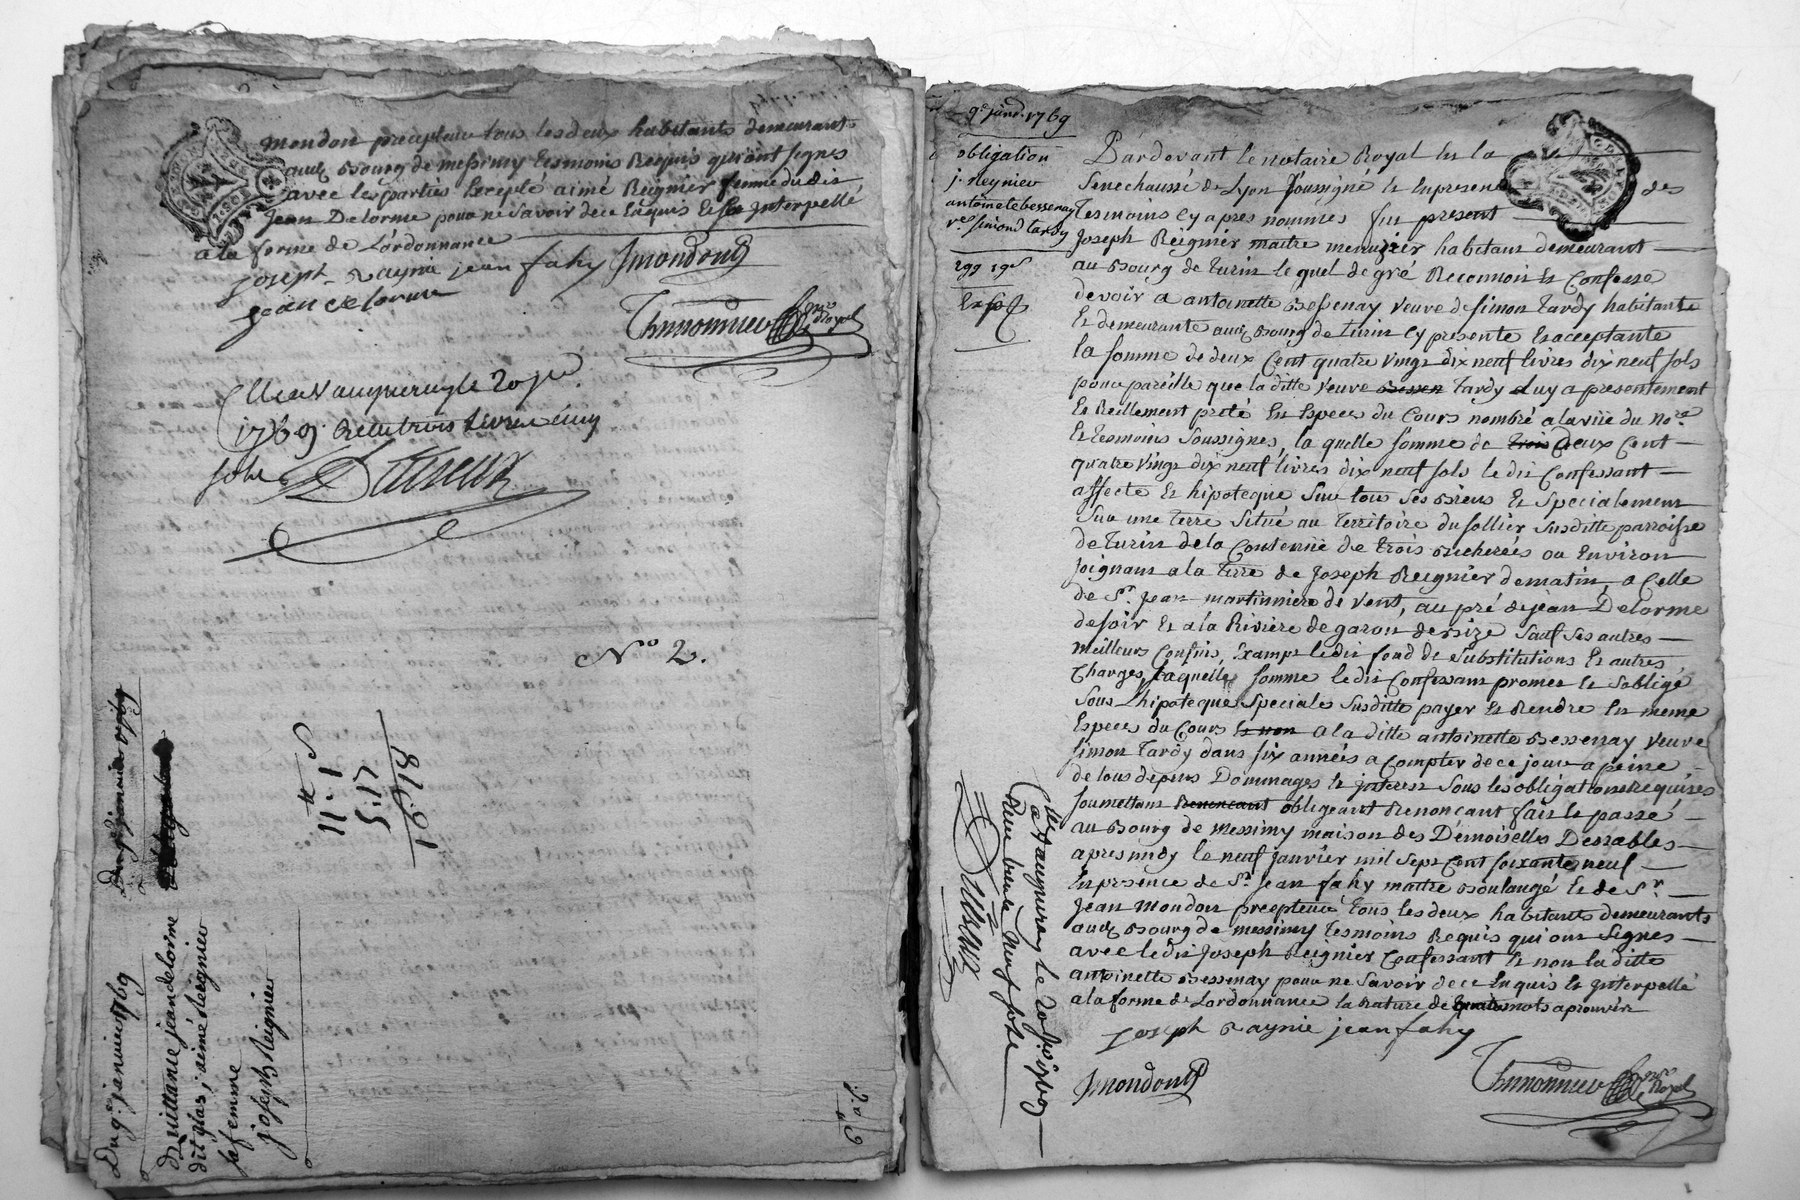 mondon precepteur tous les deux habitants demeurants
audt Bourg de messimy tesmoins Requis qui ont signes
avec les parties Excepté aimé Reignier femme dudit
Jean Delorme pour ne savoir de ce Enquis Et Interpellé
a la forme de Lordonnance
joseph Raynie jean fahy Jmondon
jean delorme
Nore Royal
1769 Recu trois livres cinq
sols
No 2.
11: 1
5: 17
16: 18
Du 9e janvier 1769
Du 9e janvier 1769
Quittance jean delorme
dit glas, aimé Reignier
sa femme
joseph Reignier
9e janv. 1769
obligation
j. Reynier
antoinete bessenay
ve simond tardy
299 19s
Exp
Pardevant le notaire Royal En la
Senechaussé de Lyon Soussigné Et En presence des
tesmoins Cy apres nommés fut present
Joseph Reignier maitre menuzier habitant demeurant
au Bourg de turin le quel de gré Reconnoit Et Confesse
devoir a antoinette Bessenay veuve de simon tardy habitante
Et demeurante audt Bourg de turin Cy presente Et acceptante
la somme de deux Cent quatre vingt dix neuf livres dix neuf sols
pour pareille que la ditte veuve tardy Luy a presentement
Et Reillement preté En Especes du Cours nombré a la vüe du Nore
Et tesmoins Soussignes, la quelle somme de trois deux Cent
quatre vingt dix neuf livres dix neuf sols le dit Confessant
affecte Et hipoteque Sur tou Ses Biens Et Specialement
Sur une terre Situé au territoire du sollier Susditte parroisse
de turin de la Contenüe de trois Bicherées ou Environ
Joignant a la terre de Joseph Reignier de matin, a Celle
de Sr Jean martinniere de vent, au pré de jean Delorme
de soir Et a la Riviere de garon de Bize Sauf Ses autres
meilleurs Confins, Exampt le dit fond de Substitutions Et autres
Charges, Laquelle somme le dit Confessant promet Et sobligé
Sous Lhipoteque Speciale Susditte payer Et Rendre En meme
Especes du Cours Et non a la ditte antoinette Bessenay veuve
Simon Tardy dans six années a Compter de ce jour a peine
de tous depens Dommages Et jnterest Sous les obligations requises
Soumettant Renoncant obligeant Renonçant fait Et passé
au Bourg de messimy maison des Démoiselles Dessables
apres midy le neuf janvier mil sept Cent soixante neuf
En presence de Sr Jean fahy maitre Boulangé Et de Sr
Jean mondon precepteur tous les deux habitants demeurants
audt Bourg de messimy tesmoins Requis qui ont Signes
avec le dit Joseph Reignier Confessant Et non la ditte
antoinette Bessenay pour ne Savoir de ce Enquis Et Interpellé
a la forme de Lordonnance la Rature de quatre mots aprouvée
joseph Raynie jean fahy
Jmondon
Nore Royal